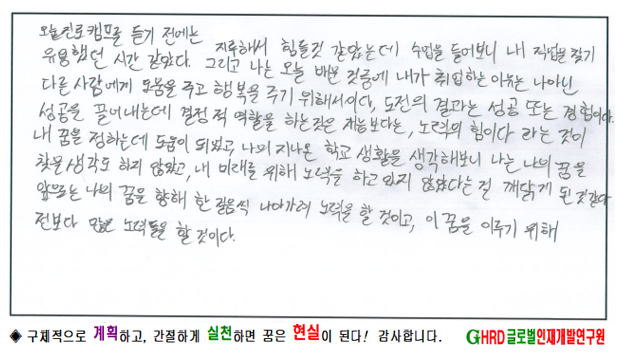 오늘 진로캠프를 듣기 전에는 지루해서 힘들것 같았는데 수업을 들어보니 내 직업을 찾기
유용했던 시간 같았다. 그리고 나는 오늘 배운 것중에 내가 취업하는 이유는 나아닌
다른 사람에게 도움을 주고 행복을 주기 위해서이다, 도전의 결과는 성공 또는 경험이다.
성공을 끌어내는데 결정적 역할을 하는것은 재능보다는, 노력의 힘이다 라는 것이
내 꿈을 정하는데 도움이 되었고, 나의 지나온 학교 생활을 생각해보니 나는 나의 꿈을
찾을 생각도 하지 않았고, 내 미래를 위해 노력을 하고 있지 않았다는 걸 깨닫게 된 것같다
앞으로는 나의 꿈을 향해 한 걸음씩 나아가려 노력을 할 것이고, 이 꿈을 이루기 위해
전보다 많은 노력들을 할 것이다.
◈ 구체적으로 계획하고, 간절하게 실천하면 꿈은 현실이 된다! 감사합니다. GHRD글로벌인재개발연구원